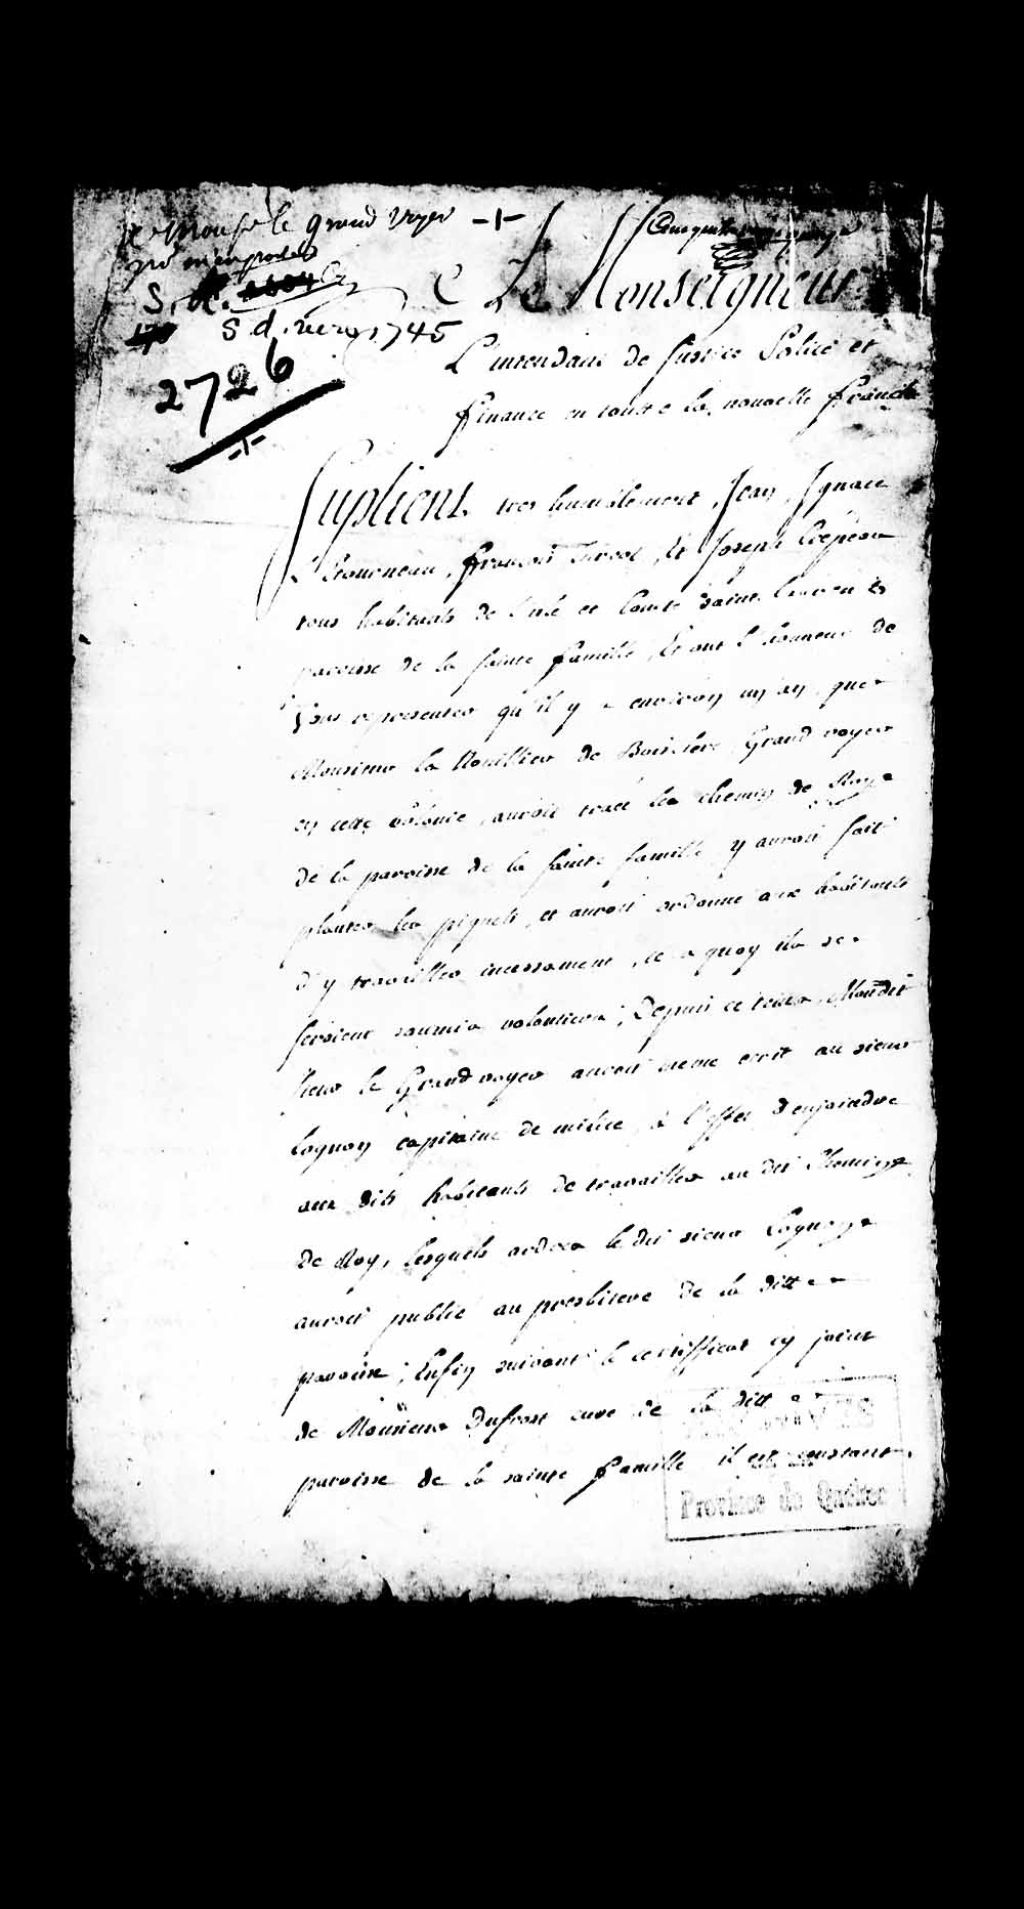 le Grand Voyer -1-
S. d. vers 1745
2726
-1-
Monseigneur
L'intendant de Justice Police et
finance en toutte la nouvelle france
Suplient tres humblement, Jean, Ignace
Létourneau, francois Turcot, Et Joseph Crepeau
tous habitants de l'isle et Comté Saint Laurent
paroisse de la sainte famille, Et ont l'honneur de
Vous representer qu'il y a environ un an, que
Monsieur la Nouillier de Boisclerc Grand voyer
en cette Colonie, auroit tracé les chemin de Roy
de la paroisse de la sainte famille, y auroit fait
planter les piquets, et auroit ordonné aux habitants
d'y travailler incessament, ce a quoy ils se
seroient soumis volontiers; Depuis ce tems, Mondit
sieur le Grand voyer auroit meme ecrit au sieur
Cognon capitaine de milice, à l'effet d'enjoindre
aux dits habitants de travailler au dit Chemin
de Roy, lesquels ordres le dit sieur Cognon
auroit publié au presbitere de la ditte
paroisse; Enfin suivant le certifficat cy joint
de Monsieur Dufrost curé de la ditte
paroisse de la sainte famille il est constant
Province de Québec